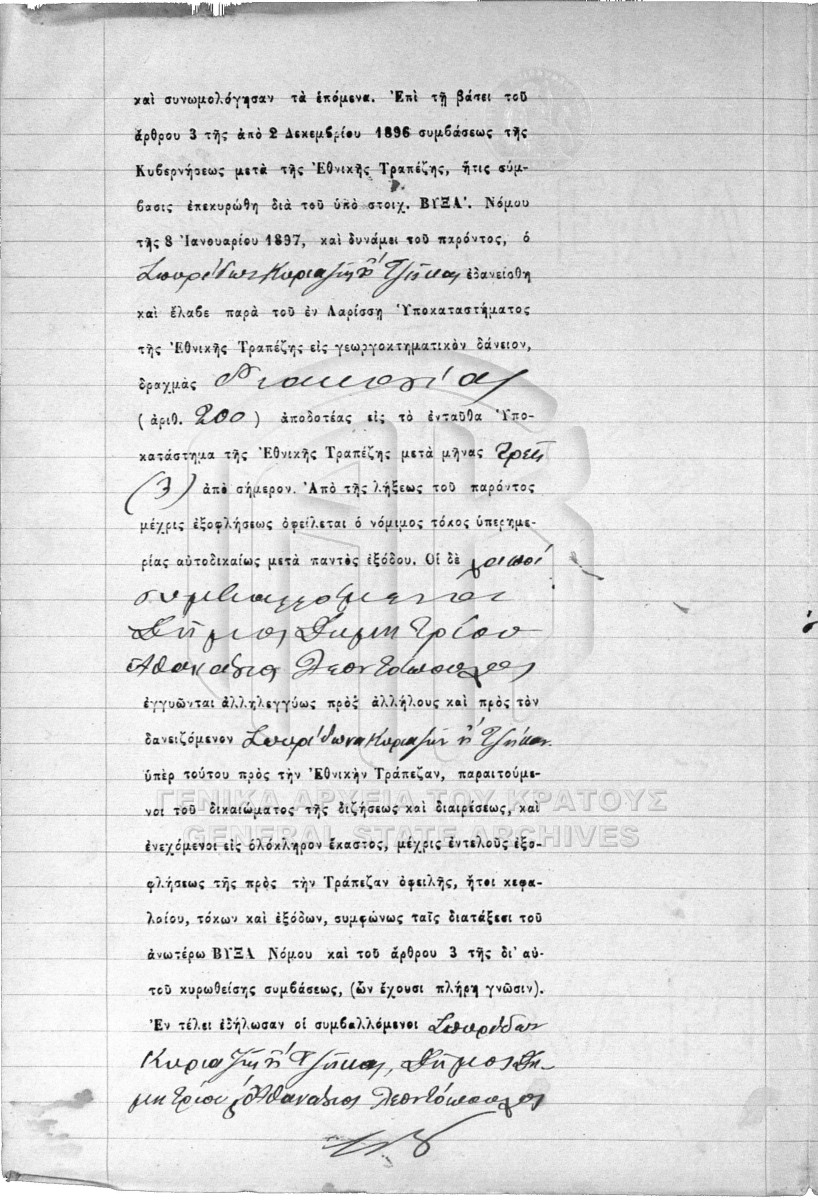 καὶ συνωμολόγησαν τὰ ἑπόμενα. Ἐπὶ τῇ βάσει τοῦ
ἄρθρου 3 τῆς ἀπὸ 2 Δεκεμβρίου 1896 συμβάσεως τῆς
Κυβερνήσεως μετὰ τῆς Ἐθνικῆς Τραπέζης, ἥτις σύμ-
βασις ἐπεκυρώθη διὰ τοῦ ὑπὸ στοιχ. ΒΥΞΑ'. Νόμου
τῆς 8 Ἰανουαρίου 1897, καὶ δυνάμει τοῦ παρόντος, ὁ
Σπυρίδων Κυριαζῆς ἢ Τζήκας ἐδανείσθη
καὶ ἔλαβε παρὰ τοῦ ἐν Λαρίσσῃ Ὑποκαταστήματος
τῆς Ἐθνικῆς Τραπέζης εἰς γεωργοκτηματικὸν δάνειον,
δραχμὰς διακοσίας
(ἀριθ. 200) ἀποδοτέας εἰς τὸ ἐνταῦθα Ὑπο-
κατάστημα τῆς Ἐθνικῆς Τραπέζης μετὰ μῆνας τρεῖς
(3) ἀπὸ σήμερον. Ἀπὸ τῆς λήξεως τοῦ παρόντος
μέχρις ἐξοφλήσεως ὀφείλεται ὁ νόμιμος τόκος ὑπερημε-
ρίας αὐτοδικαίως μετὰ παντὸς ἐξόδου. Οἱ δὲ λοιποί
συμβαλλόμενοι
Δῆμος Δημητρίου
Ἀθανάσιος Λεοντόπουλος
ἐγγυῶνται ἀλληλεγγύως πρὸς ἀλλήλους καὶ πρὸς τὸν
δανειζόμενον Σπυρίδωνα Κυριαζῆν ἢ Τζήκαν
ὑπὲρ τούτου πρὸς τὴν Ἐθνικὴν Τράπεζαν, παραιτούμε-
νοι τοῦ δικαιώματος τῆς διζήσεως καὶ διαιρέσεως, καὶ
ἐνεχόμενοι εἰς ὁλόκληρον ἕκαστος, μέχρις ἐντελοῦς ἐξο-
φλήσεως τῆς πρὸς τὴν Τράπεζαν ὀφειλῆς, ἤτοι κεφα-
λαίου, τόκων καὶ ἐξόδων, συμφώνως ταῖς διατάξεσι τοῦ
ἀνωτέρω ΒΥΞΑ Νόμου καὶ τοῦ ἄρθρου 3 τῆς δι' αὐ-
τοῦ κυρωθείσης συμβάσεως, (ὧν ἔχουσι πλήρη γνῶσιν).
Ἐν τέλει ἐδήλωσαν οἱ συμβαλλόμενοι Σπυρίδων
Κυριαζῆς ἢ Τζήκας, Δῆμος Δη-
μητρίου Ἀθανάσιος Λεοντόπουλος
ΓΕΝΙΚΑ ΑΡΧΕΙΑ ΤΟΥ ΚΡΑΤΟΥΣ
GENERAL STATE ARCHIVES